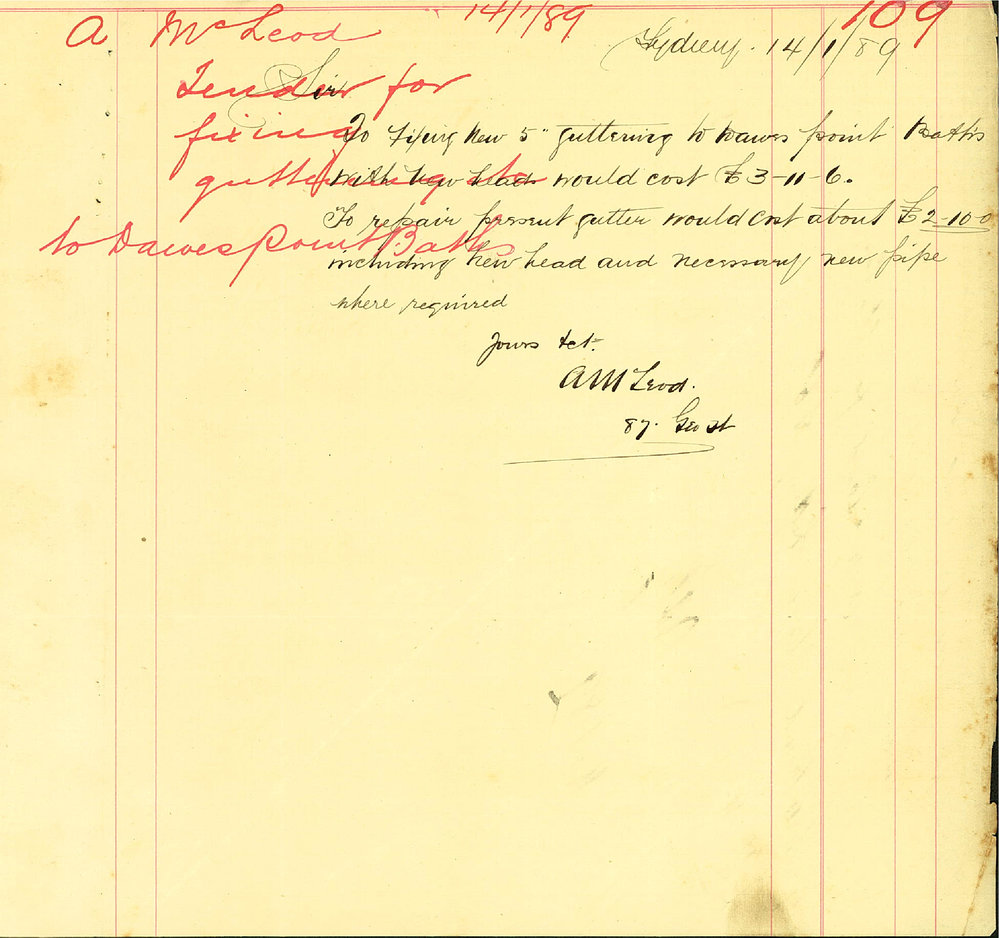 14/1/89
109
A McLeod
Sydney. 14/1/89
Tender for
fixing
guttering to
to Dawes Point Baths
Sir
To Fixing New 5" guttering to Dawes point Baths
with New head would cost £3-11-6.
To repair present gutter would cost about £2-10-0
including New head and necessary new pipe
where required
Yours &ct.
A McLeod.
87. Geo st